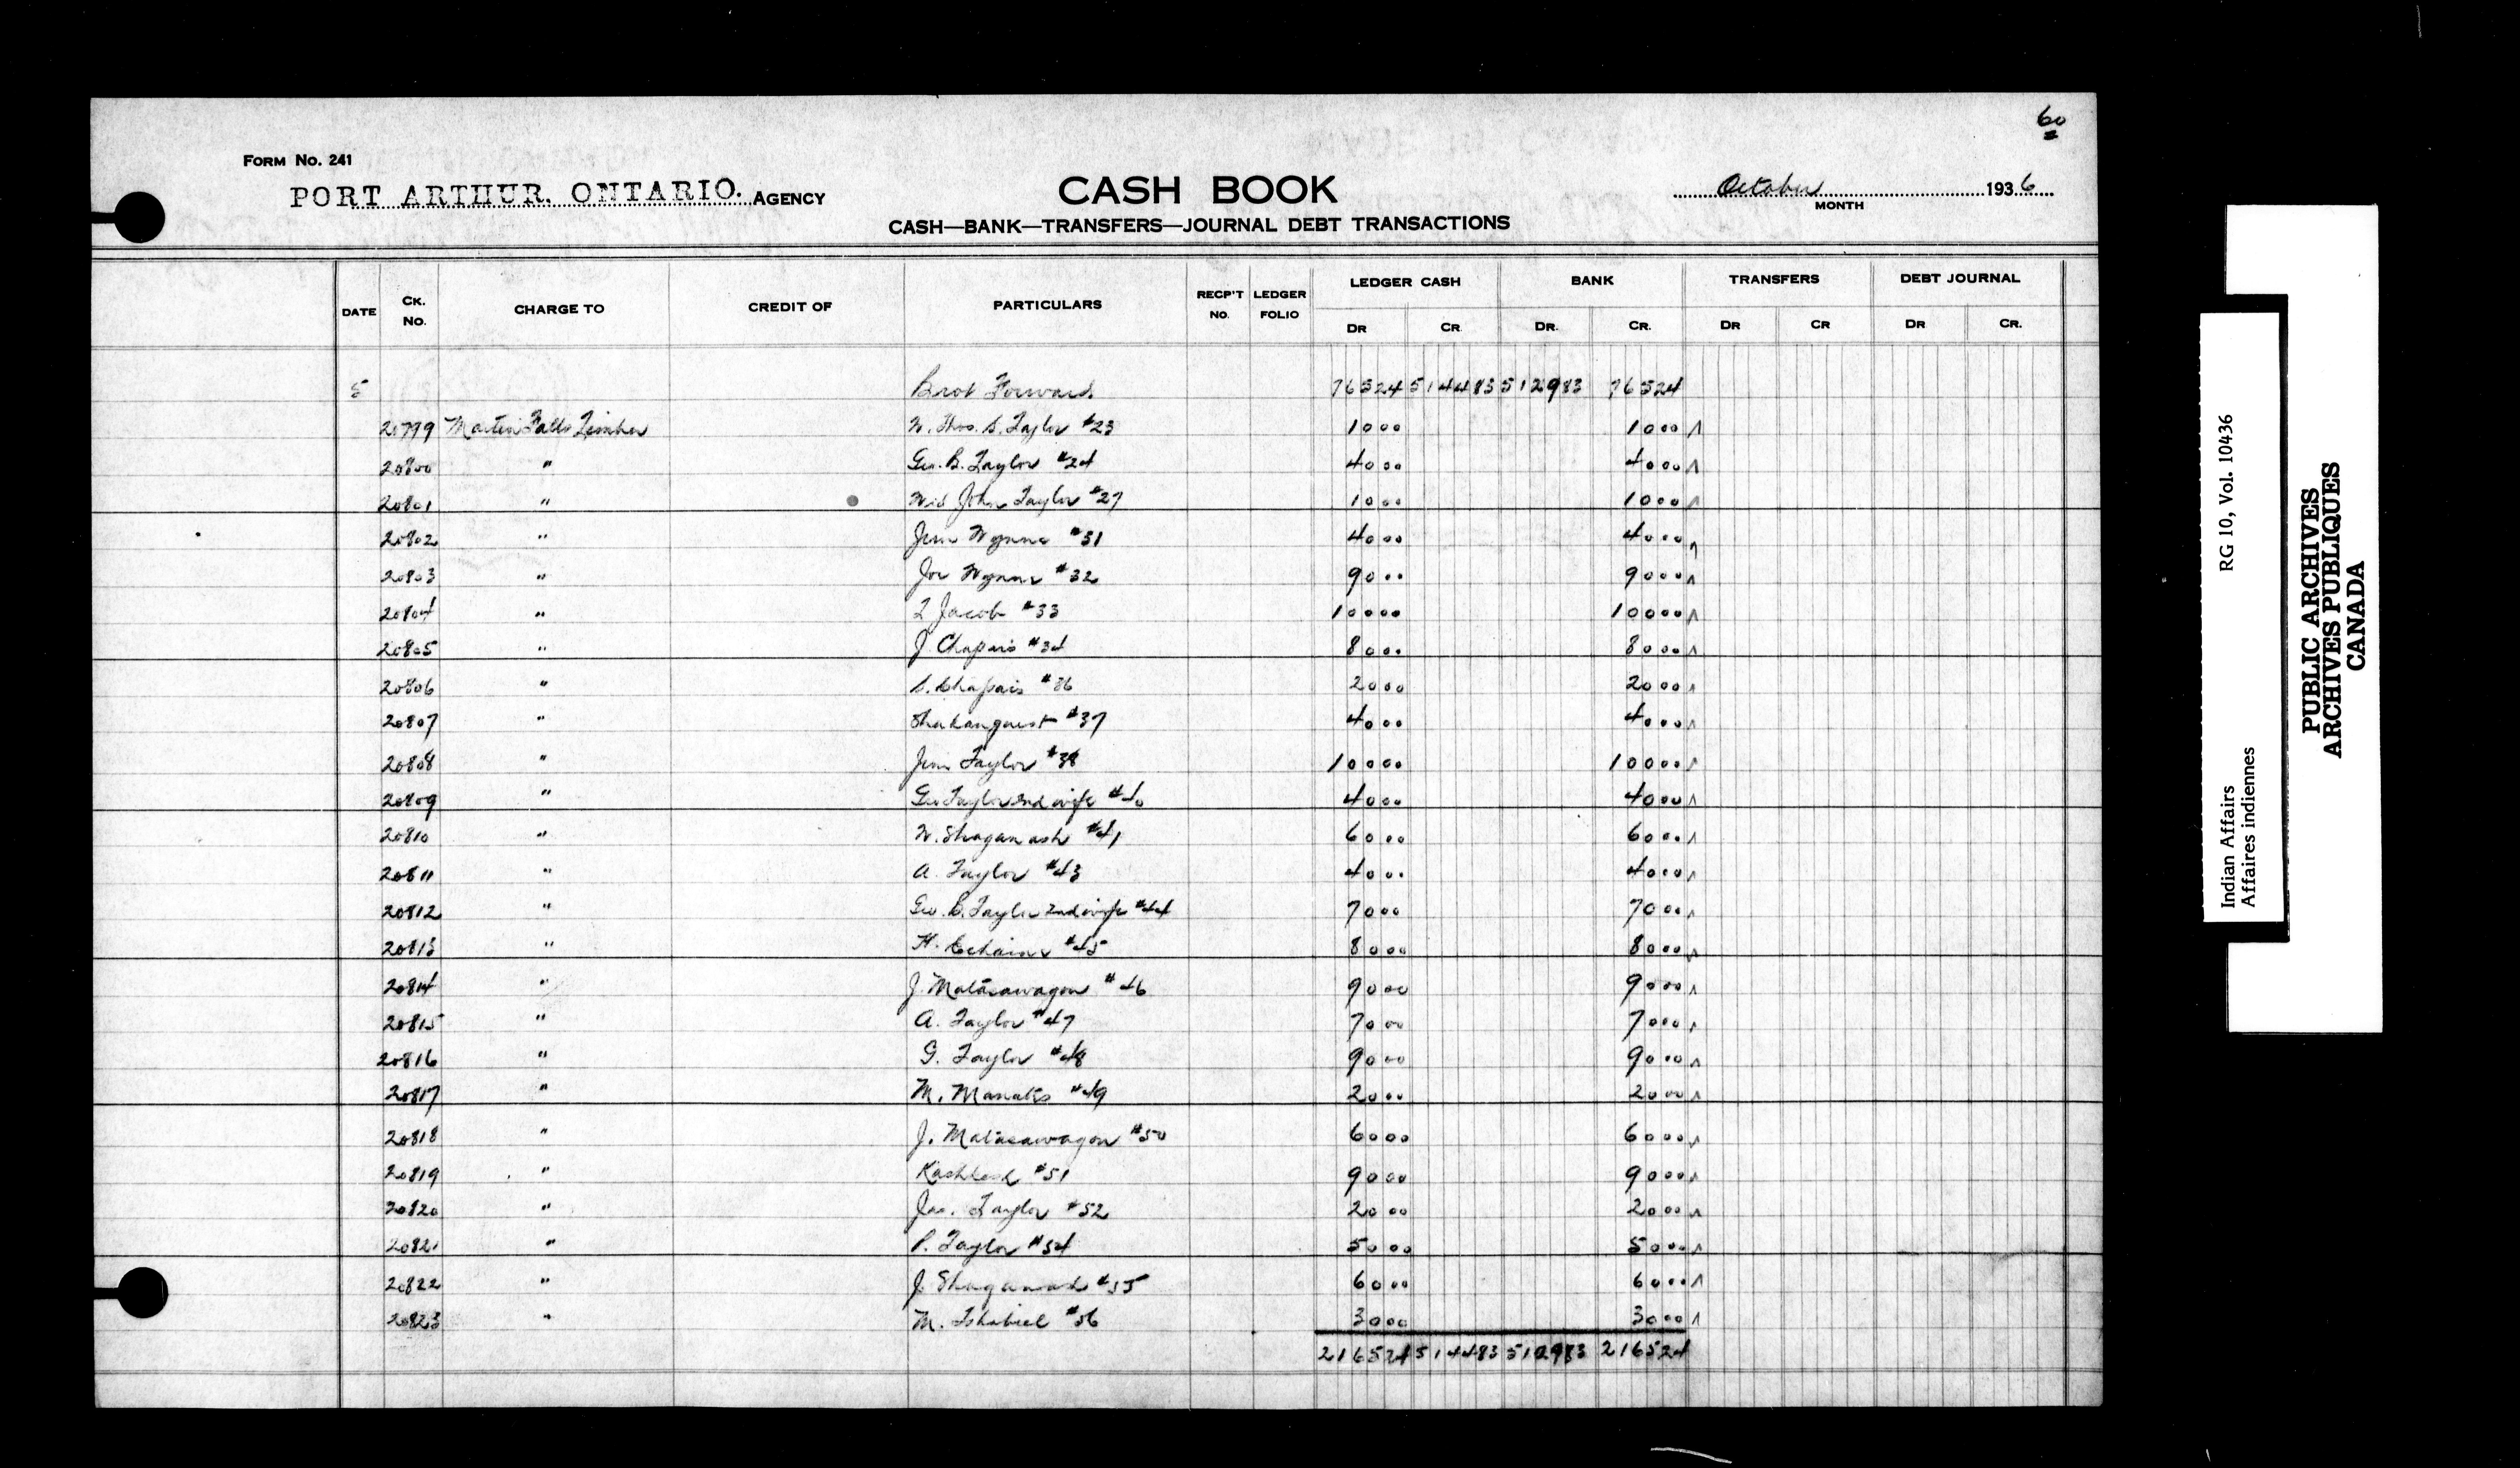 60
Form No. 241
PORT ARTHUR. ONTARIO. AGENCY
CASH BOOK
October 1936
MONTH
CASH—BANK—TRANSFERS—JOURNAL DEBT TRANSACTIONS
DATE CK. No. CHARGE TO CREDIT OF PARTICULARS RECP'T No. LEDGER FOLIO LEDGER CASH BANK TRANSFERS DEBT JOURNAL
DR CR. DR. CR. DR CR DR CR.
5 Brot Forward 76524 514483 512983 76524
20799 Martin Falls Timber W. Thos. S. Taylor #23 1000 1000
20800 " Geo. B. Taylor #24 4000 4000
20801 " Wid John Taylor #27 1000 1000
20802 " Jim Wynne #31 4000 4000
20803 " Joe Wynne #32 9000 9000
20804 " Jacob #33 10000 10000
20805 " J. Chapais #34 8000 8000
20806 " S. Chapais #36 2000 2000
20807 " #37 4000 4000
20808 " Jim Taylor #38 10000 10000
20809 " Geo Taylor 2nd wife #40 4000 4000
20810 " W. Shaganash #41 6000 6000
20811 " A. Taylor #43 4000 4000
20812 " Geo. B. Taylor 2nd wife #44 7000 7000
20813 " H. #45 8000 8000
20814 " J. Matasawagon #46 9000 9000
20815 " A. Taylor #47 7000 7000
20816 " G. Taylor #48 9000 9000
20817 " M. #49 2000 2000
20818 " J. Matasawagon #50 6000 6000
20819 " #51 9000 9000
20820 " Jas. Taylor #52 2000 2000
20821 " P. Taylor #54 5000 5000
20822 " J. Shaganash #55 6000 6000
20823 " M. #56 3000 3000
216524 514483 512983 216524
RG 10, Vol. 10436
Indian Affairs
Affaires indiennes
PUBLIC ARCHIVES
ARCHIVES PUBLIQUES
CANADA